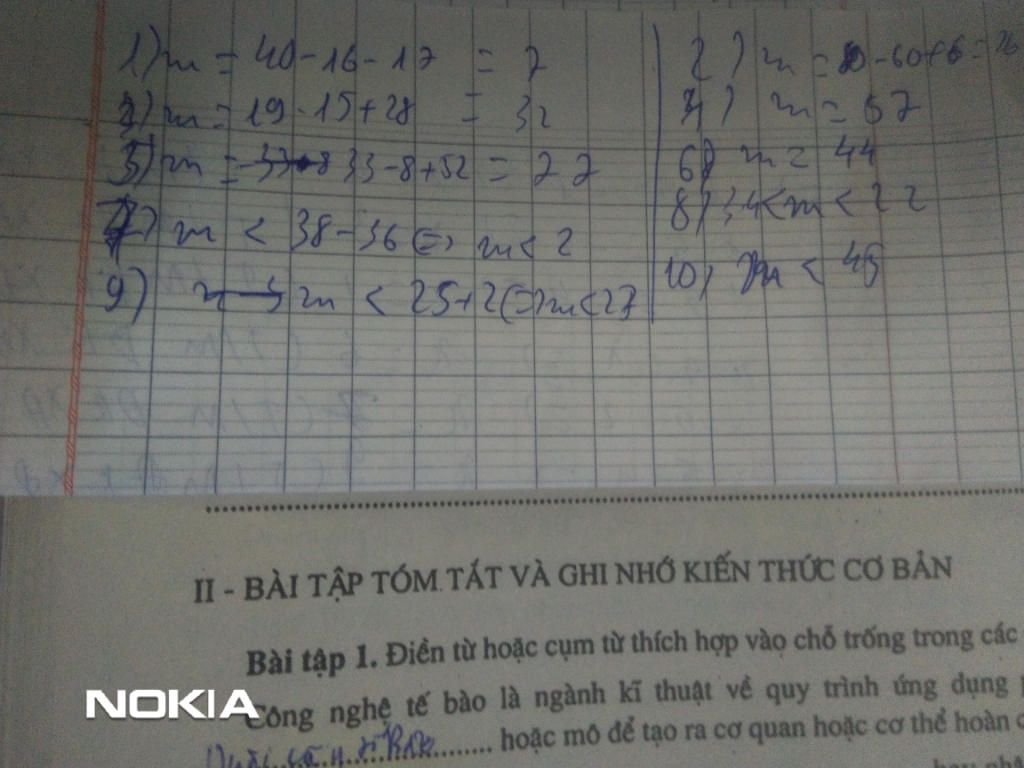 1) m = 40 - 16 - 17 = 7
3) m = 19 - 15 + 28 = 32
5) m = 33 - 8 + 52 = 77
7) m < 38 - 36 <=> m < 2
9) m < 25 + 2 <=> m < 27
2) m = - 60 + 6 =
4) m = 57
6) m = 44
8) 34 < m < 22
10) m < 45
II - BÀI TẬP TÓM TẮT VÀ GHI NHỚ KIẾN THỨC CƠ BẢN
Bài tập 1. Điền từ hoặc cụm từ thích hợp vào chỗ trống trong các
Công nghệ tế bào là ngành kĩ thuật về quy trình ứng dụng
hoặc mô để tạo ra cơ quan hoặc cơ thể hoàn
NOKIA